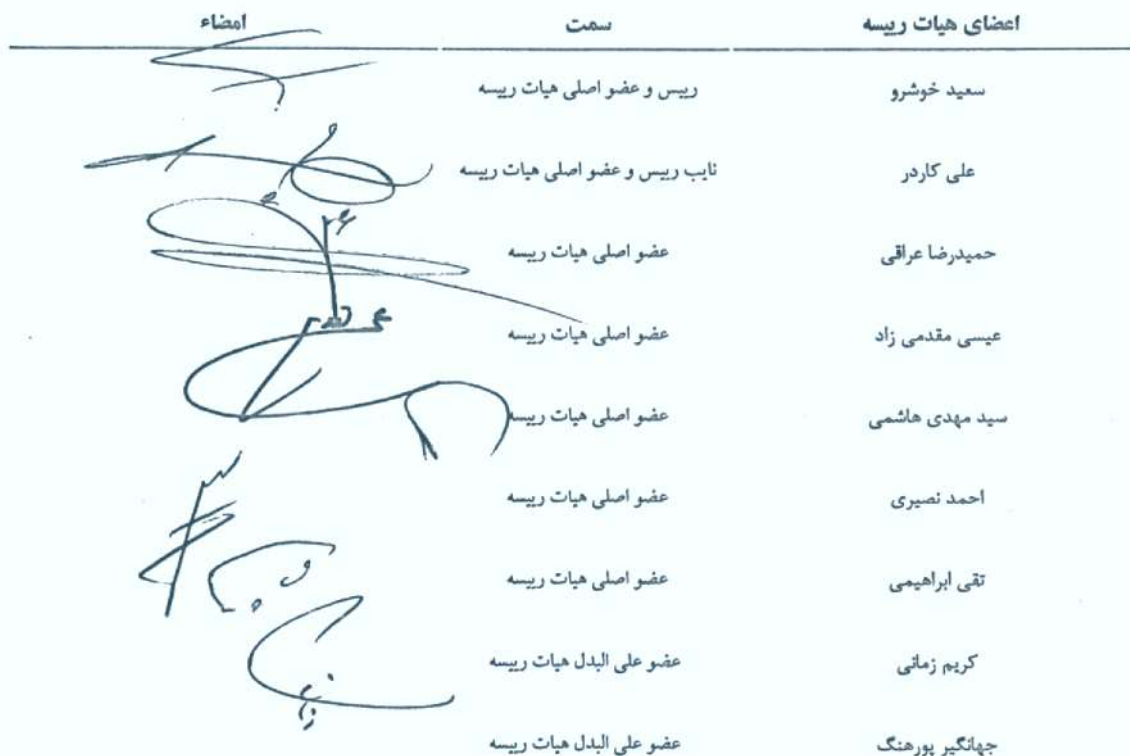 اعضای هیات رییسه سمت امضاء
سعید خوشرو رییس و عضو اصلی هیات رییسه
علی کاردر نایب رییس و عضو اصلی هیات رییسه
حمیدرضا عراقی عضو اصلی هیات رییسه
عیسی مقدمی زاد عضو اصلی هیات رییسه
سید مهدی هاشمی عضو اصلی هیات رییسه
احمد نصیری عضو اصلی هیات رییسه
تقی ابراهیمی عضو اصلی هیات رییسه
کریم زمانی عضو علی البدل هیات رییسه
جهانگیر پورهنگ عضو علی البدل هیات رییسه